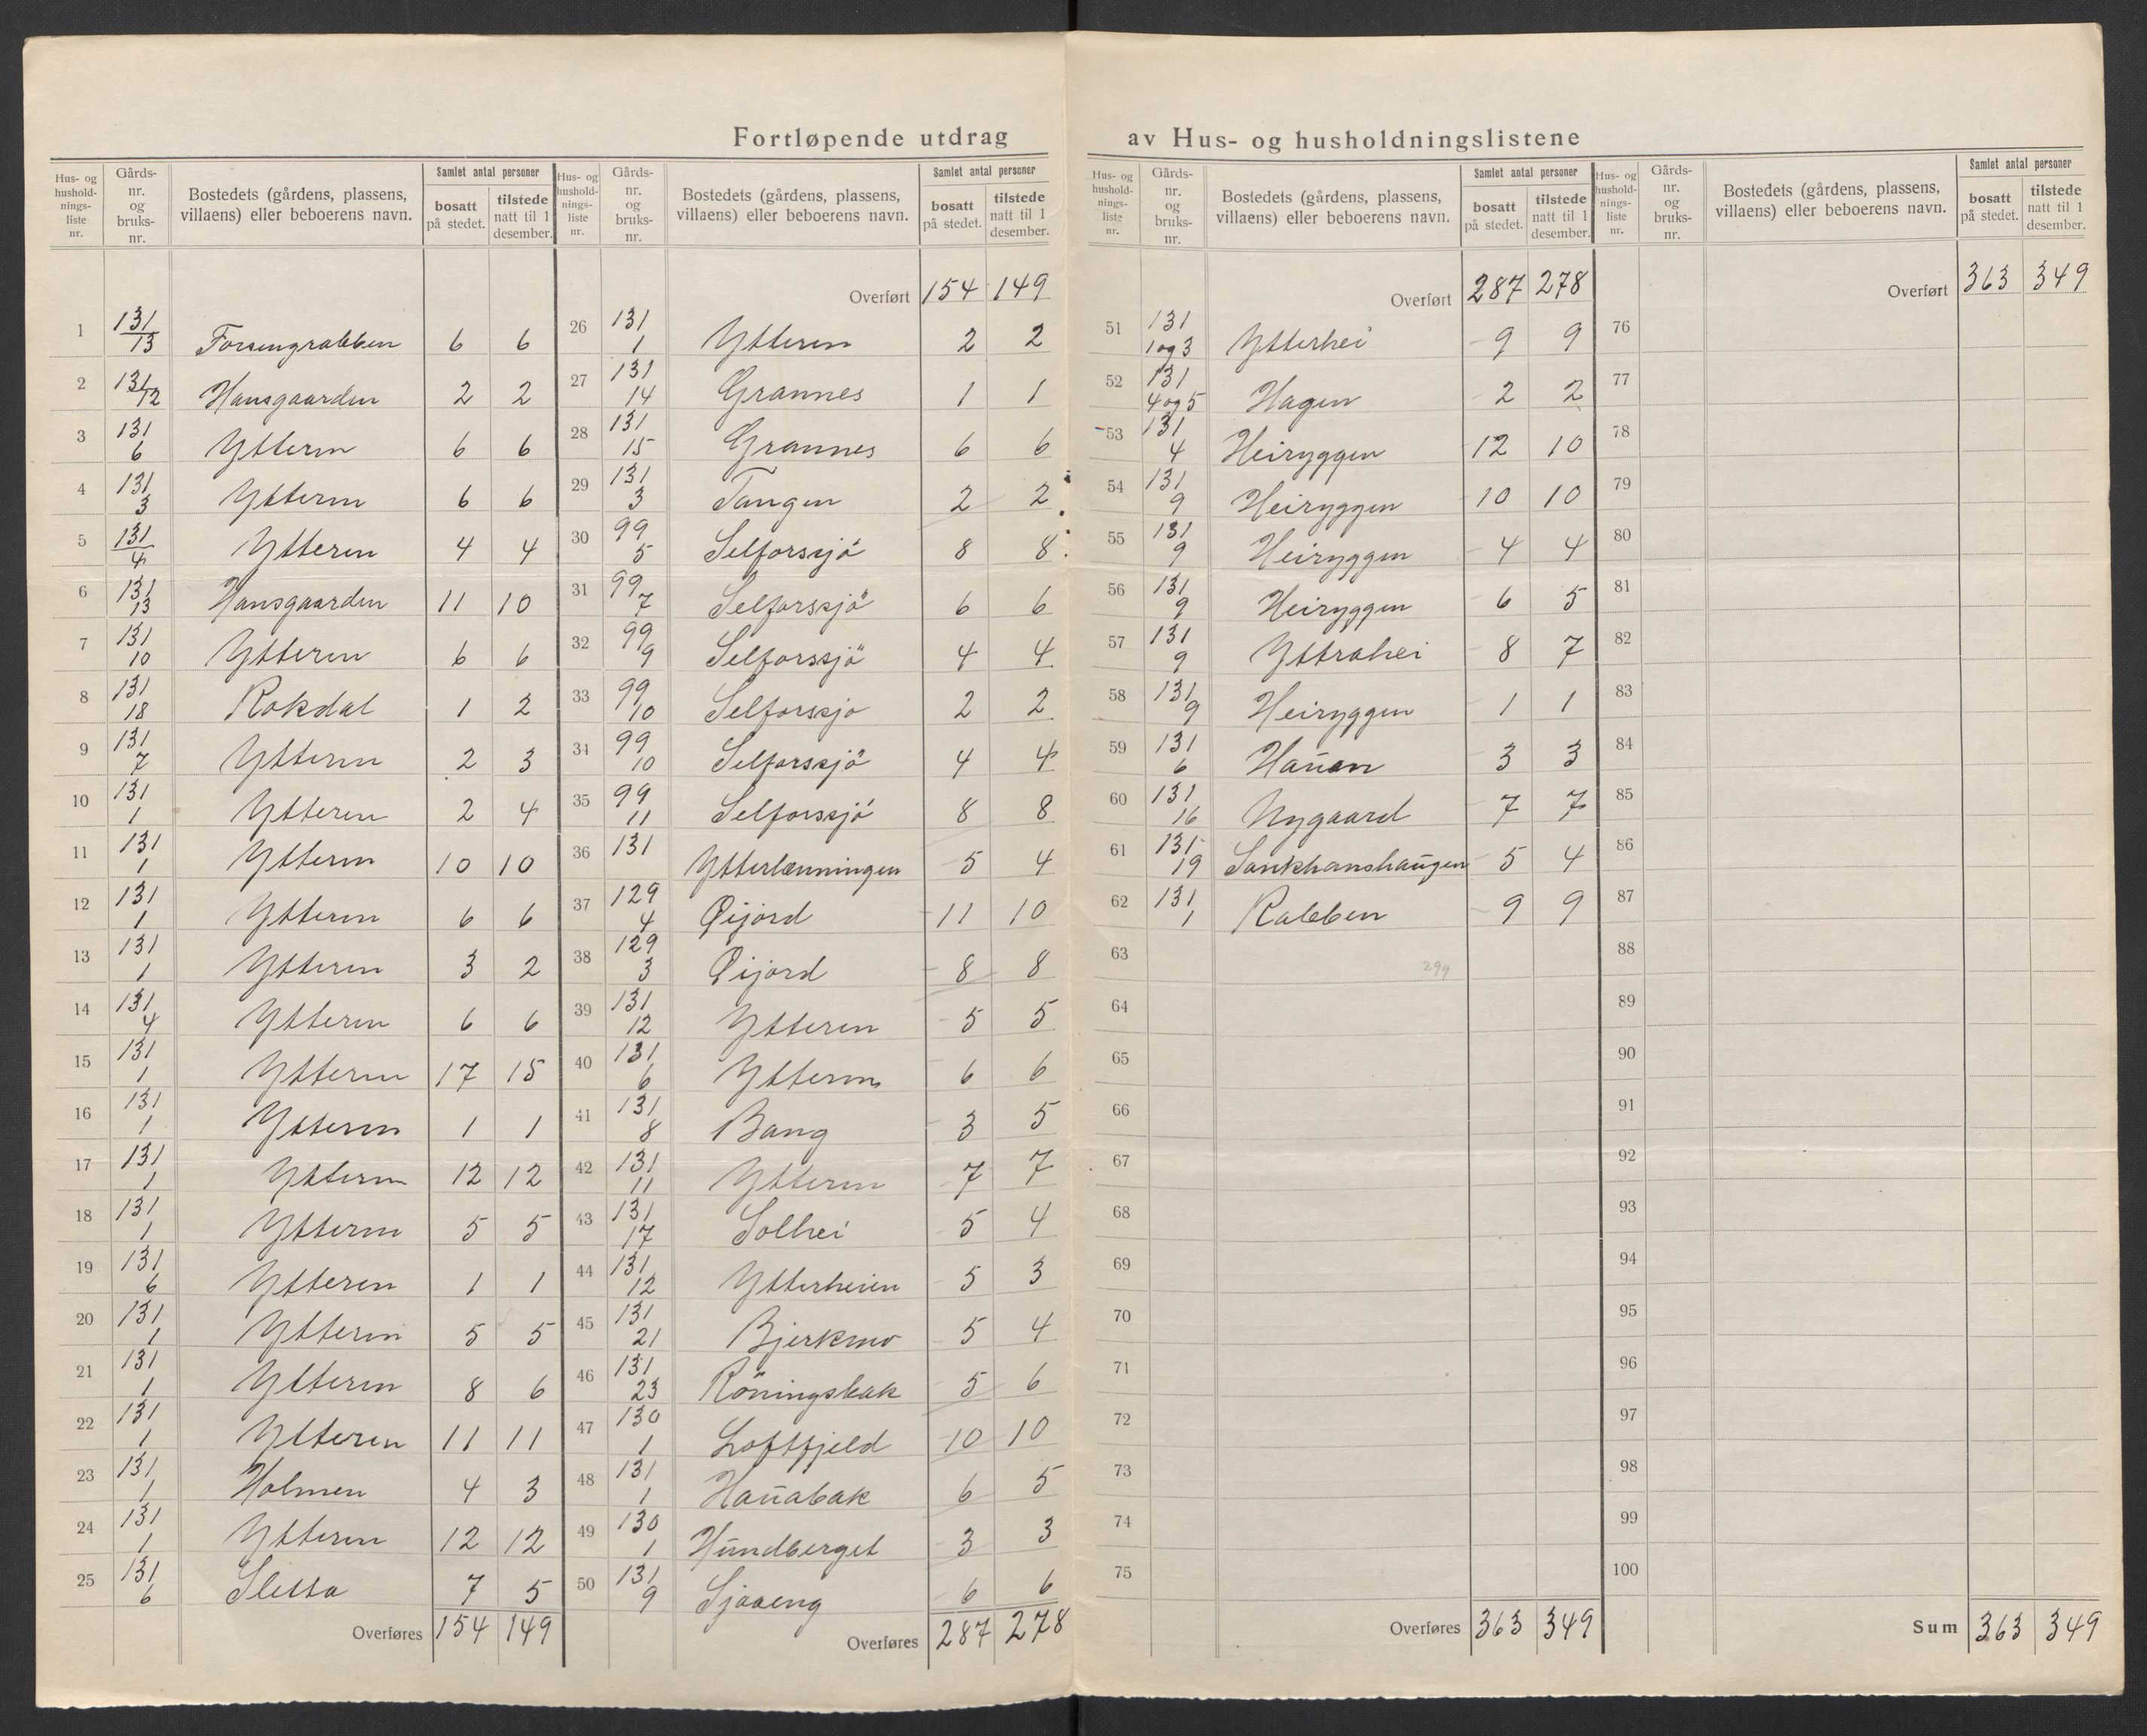 Fortløpende utdrag av Hus- og husholdningslistene
Hus- og husholdnings-liste nr. | Gårds-nr. og bruks-nr. | Bostedets (gårdens, plassens, villaens) eller beboerens navn. | Samlet antal personer | bosatt på stedet. | tilstede natt til 1 desember.
1 131/13 Forsengrabben 6 6
2 131/12 Hansgaarden 2 2
3 131 6 Ytteren 6 6
4 131 3 Ytteren 6 6
5 131/4 Ytteren 4 4
6 131 13 Hansgaarden 11 10
7 131 10 Ytteren 6 6
8 131 18 Rokdal 1 2
9 131 7 Ytteren 2 3
10 131 1 Ytteren 2 4
11 131 1 Ytteren 10 10
12 131 1 Ytteren 6 6
13 131 1 Ytteren 3 2
14 131 4 Ytteren 6 6
15 131 1 Ytteren 17 15
16 131 1 Ytteren 1 1
17 131 1 Ytteren 12 12
18 131 1 Ytteren 5 5
19 131 6 Ytteren 1 1
20 131 1 Ytteren 5 5
21 131 1 Ytteren 8 6
22 131 1 Ytteren 11 11
23 131 1 Holmen 4 3
24 131 1 Ytteren 12 12
25 131 6 Sletta 7 5
Overføres 154 149
Hus- og husholdnings-liste nr. | Gårds-nr. og bruks-nr. | Bostedets (gårdens, plassens, villaens) eller beboerens navn. | Samlet antal personer | bosatt på stedet. | tilstede natt til 1 desember.
Overført 154 149
26 131 1 Ytteren 2 2
27 131 14 Grannes 1 1
28 131 15 Grannes 6 6
29 131 3 Tangen 2 2
30 99 5 Selforssjö 8 8
31 99 7 Selforssjö 6 6
32 99 9 Selforssjö 4 4
33 99 10 Selforssjo 2 2
34 99 10 Selforssjö 4 4
35 99 11 Selforssjö 8 8
36 131 Ytterlænningen 5 4
37 129 4 Øijord 11 10
38 129 3 Øijord 8 8
39 131 12 Ytteren 5 5
40 131 6 Ytteren 6 6
41 131 8 Bang 3 5
42 131 11 Ytteren 7 7
43 131 17 Solhei 5 4
44 131 12 Ytterheien 5 3
45 131 21 Bjerkmo 5 4
46 131 23 Röningsbak 5 6
47 130 1 Loftfjeld 10 10
48 131 1 Haŭabak 6 5
49 130 1 Hŭndberget 3 3
50 131 9 Sjaaeng 6 6
Overføres 287 278
Hus- og husholdnings-liste nr. | Gårds-nr. og bruks-nr. | Bostedets (gårdens, plassens, villaens) eller beboerens navn. | Samlet antal personer | bosatt på stedet. | tilstede natt til 1 desember.
Overført 287 278
51 131 1 og 3 Ytterhei 9 9
52 131 4 og 5 Hagen 2 2
53 131 4 Heiryggen 12 10
54 131 9 Heiryggen 10 10
55 131 9 Heiryggen 4 4
56 131 9 Heiryggen 6 5
57 131 9 Yttrahei 8 7
58 131 9 Heiryggen 1 1
59 131 6 Haŭan 3 3
60 131 16 Nygaard 7 7
61 131 19 Sankhanshaŭgen 5 4
62 131 1 Rabben 9 9
63
299
64
65
66
67
68
69
70
71
72
73
74
75
Overføres 363 349
Hus- og husholdnings-liste nr. | Gårds-nr. og bruks-nr. | Bostedets (gårdens, plassens, villaens) eller beboerens navn. | Samlet antal personer | bosatt på stedet. | tilstede natt til 1 desember.
Overført 363 349
76
77
78
79
80
81
82
83
84
85
86
87
88
89
90
91
92
93
94
95
96
97
98
99
100
Sum 363 349